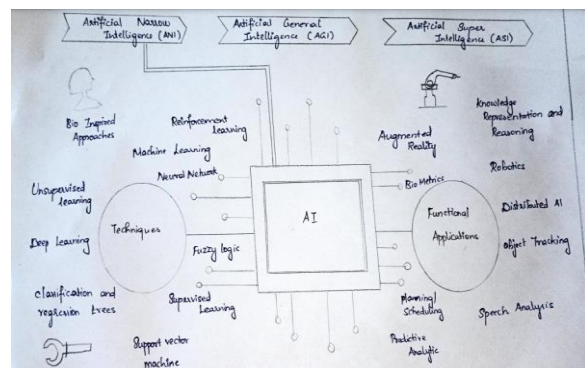 Artificial Narrow
Intelligence (ANI)
Artificial General
Intelligence (AGI)
Artificial Super
Intelligence (ASI)
Bio Inspired
Approaches
Reinforcement
learning
Machine Learning
Neural Network
Unsupervised
learning
Techniques
Deep Learning
Fuzzy logic
Classification and
regression trees
Supervised
Learning
Support vector
machine
AI
Augmented
Reality
Knowledge
Representation and
Reasoning
Bio Metrics
Robotics
Functional
Applications
Distributed AI
Object Tracking
Planning/
Scheduling
Speech Analysis
Predictive
Analytic